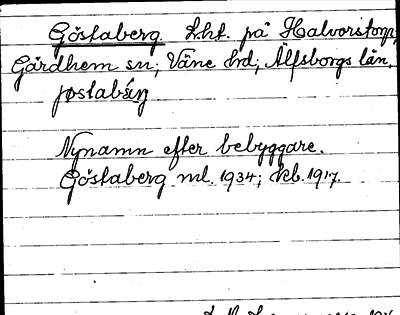 Göstaberg. Lht. på Halvorstorp,
Gärdhem sn; Väne hd; Älfsborgs län.
Nynamn efter bebyggare.
Göstaberg ml. 1934; kb. 1917.